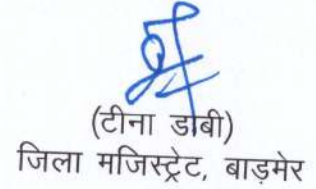 (टीना डाबी)
जिला मजिस्ट्रेट, बाड़मेर